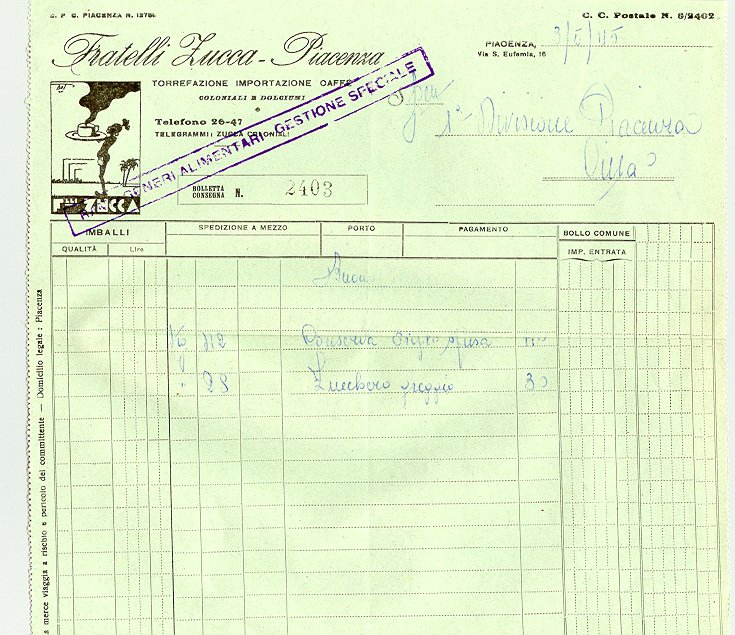 C. P. C. PIACENZA N. 12781
C. C. Postale N. 8/2402
Fratelli Zucca - Piacenza
PIACENZA,
Via S. Eufemia, 16
TORREFAZIONE IMPORTAZIONE CAFFÈ
COLONIALI E DOLCIUMI
Telefono 26-47
TELEGRAMMI: ZUCCA COLONIALI
GENERI ALIMENTARI GESTIONE SPECIALE
1ª Divisione Piacenza
ZUCCA
BOLLETTA
CONSEGNA N. 2403
IMBALLI
SPEDIZIONE A MEZZO
PORTO
PAGAMENTO
BOLLO COMUNE
QUALITÀ
Lire
IMP. ENTRATA
Buoni
Kg 112 Conserva
" 28 Zucchero greggio 30
a merce viaggia a rischio e pericolo del committente — Domicilio legale : Piacenza